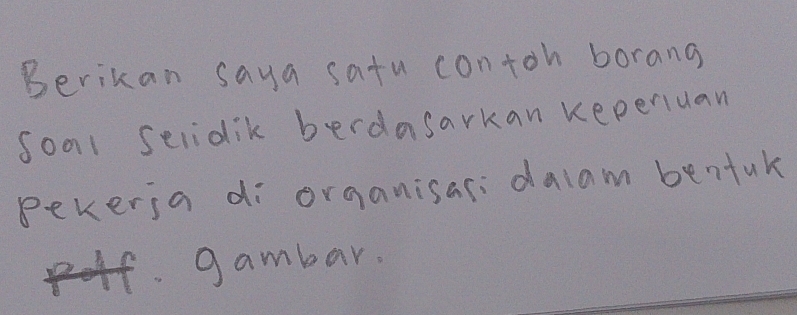 Berikan saya satu contoh borang
soal selidik berdasarkan keperluan
pekerja di organisasi dalam bentuk
pdf. gambar.